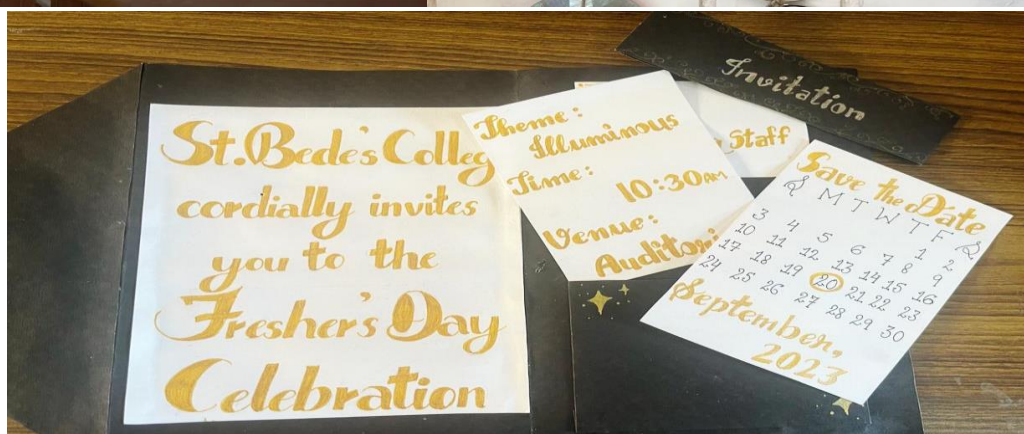 St.Bede's Colleg
cordially invites
you to the
Fresher's Day
Celebration
Theme:
Illuminous
Time:
10:30AM
Venue:
Auditori
Staff
Invitation
Save the Date
S M T W T F S
1 2
3 4 5 6 7 8 9
10 11 12 13 14 15 16
17 18 19 20 21 22 23
24 25 26 27 28 29 30
September,
2023